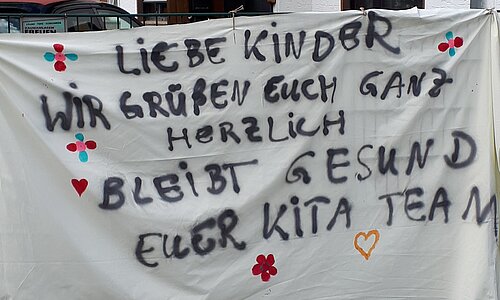 LIEBE KINDER
WIR GRÜßEN EUCH GANZ
HERZLICH
BLEIBT GESUND
EUER KITA TEAM